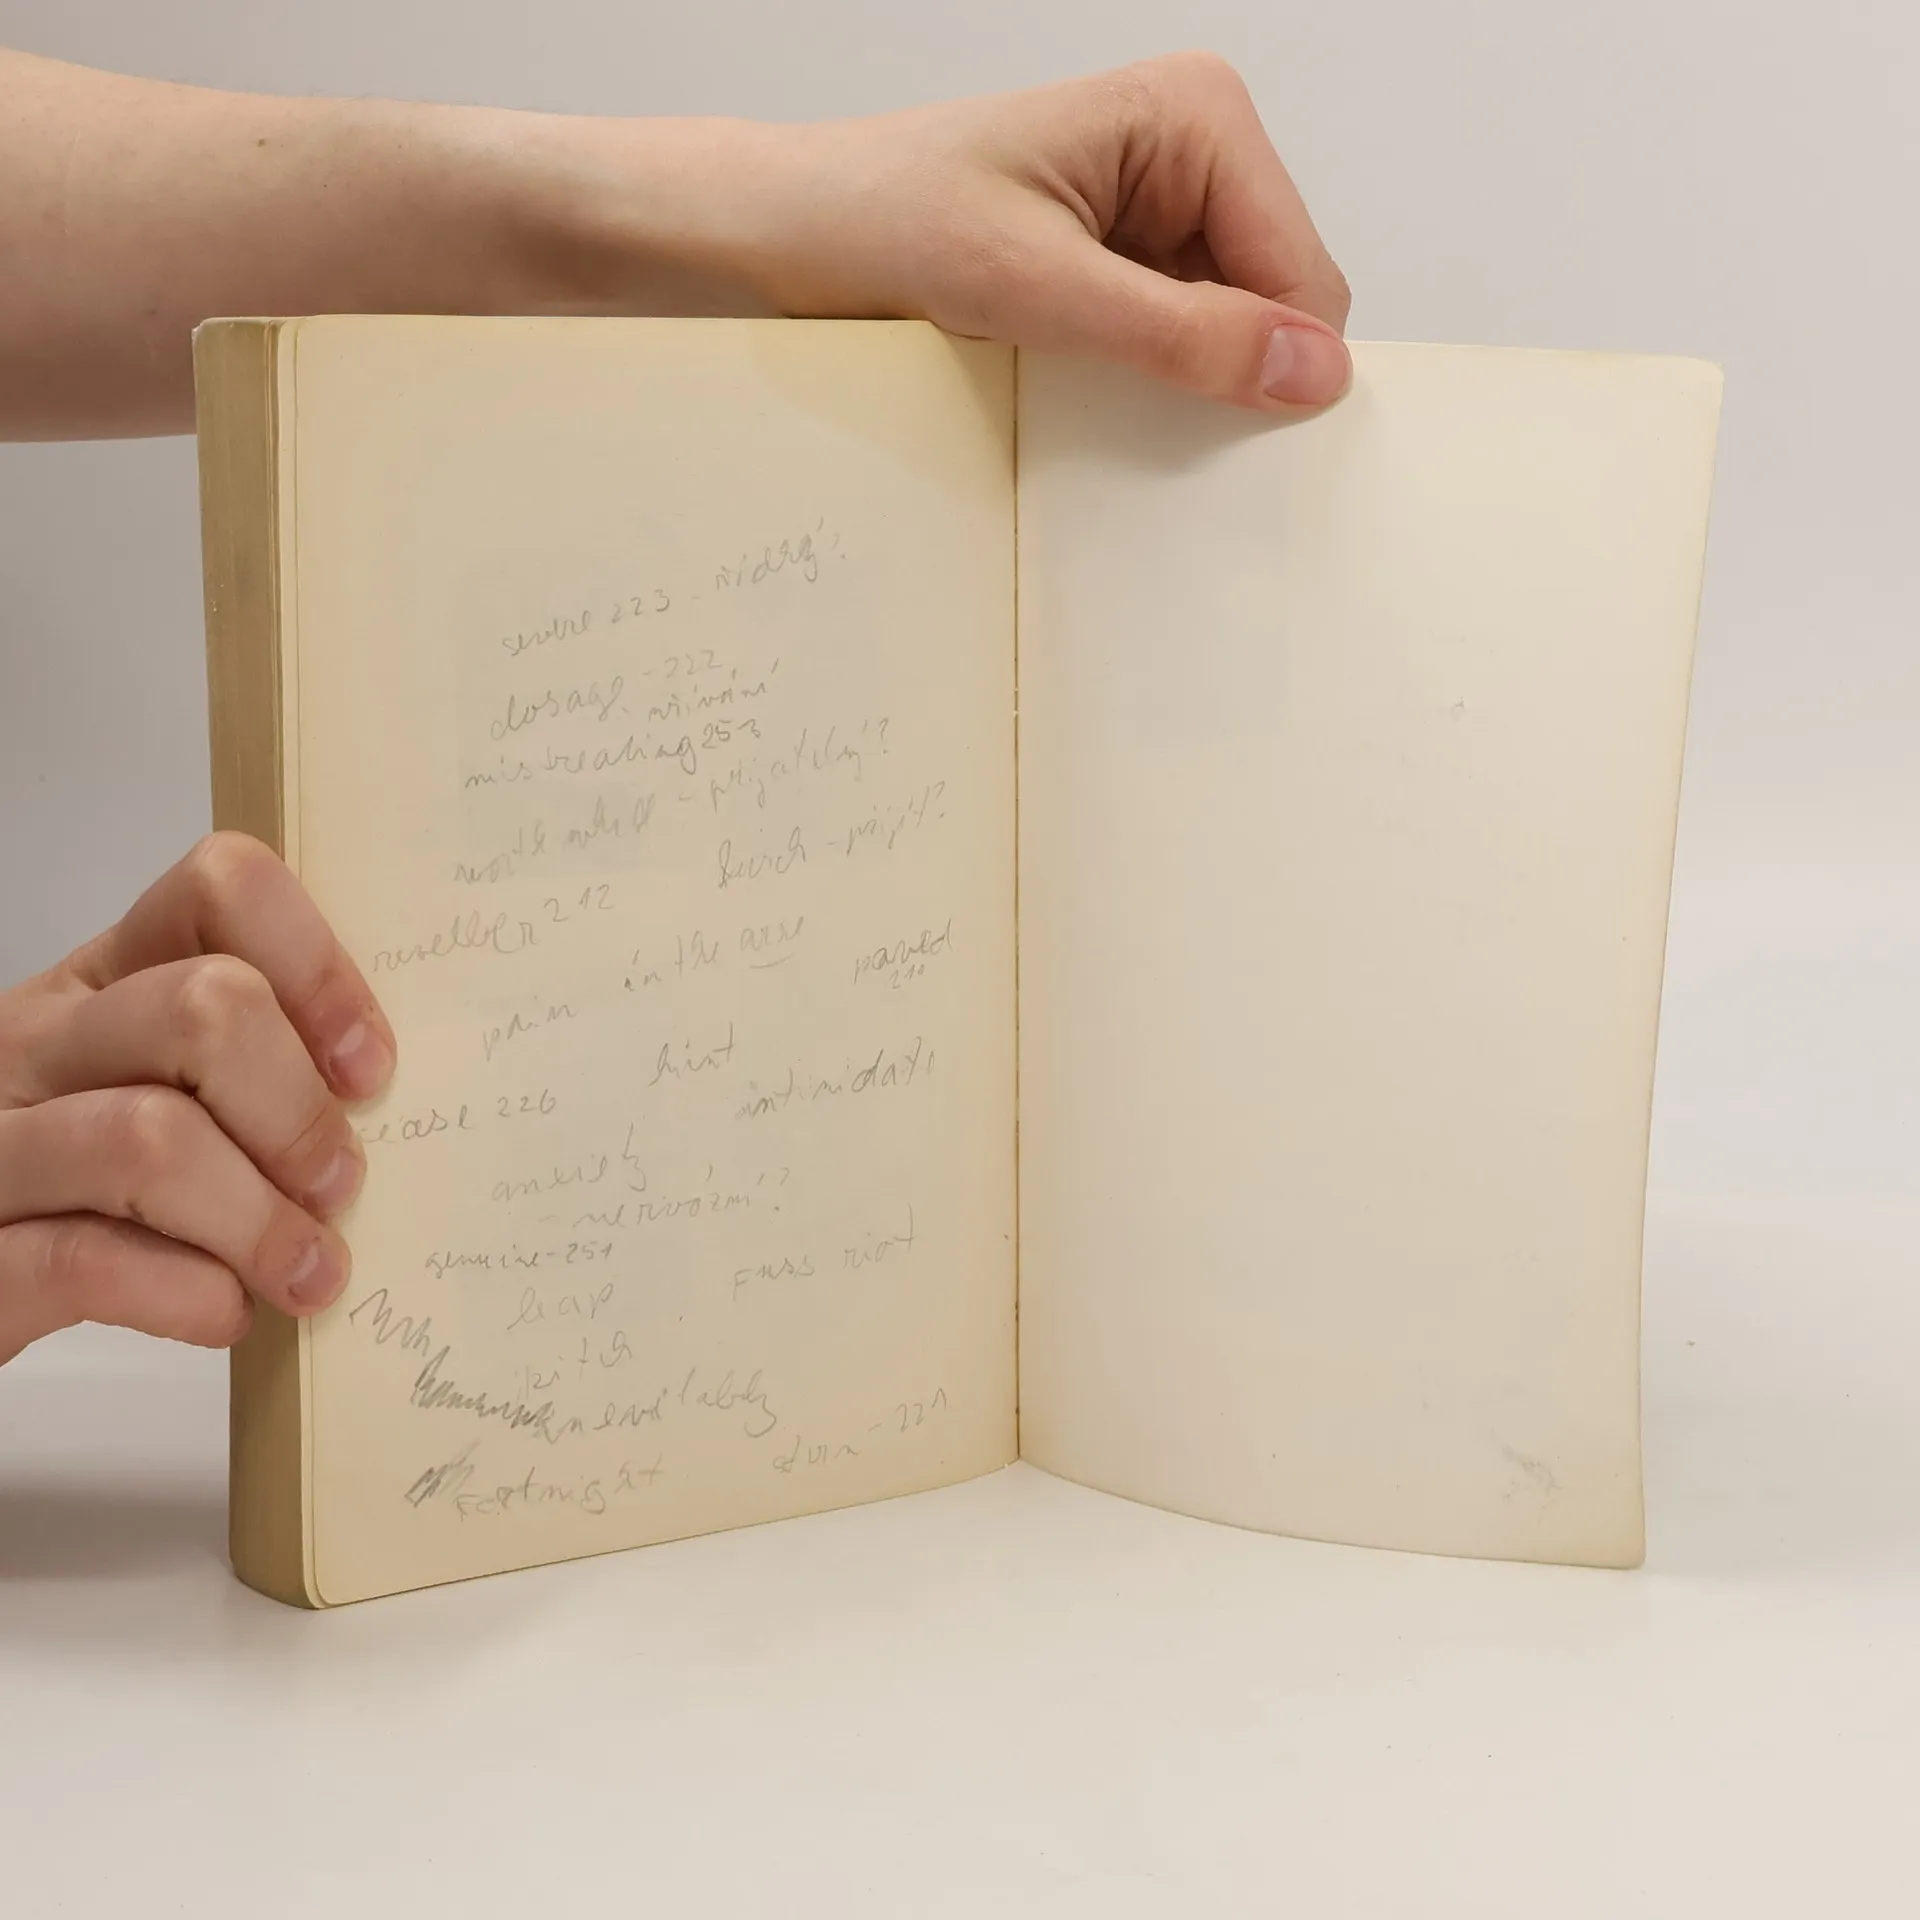 severe 223 -
dosage - 222
mistreating 253
worth while - přijatelný?
reveller 212
pain in the arse
paved
210
hint
cease 226
intimidate
anxiety
- nervózní?
genuine - 251
leap
Fuss riot
pitch
inevitably
Fortnight